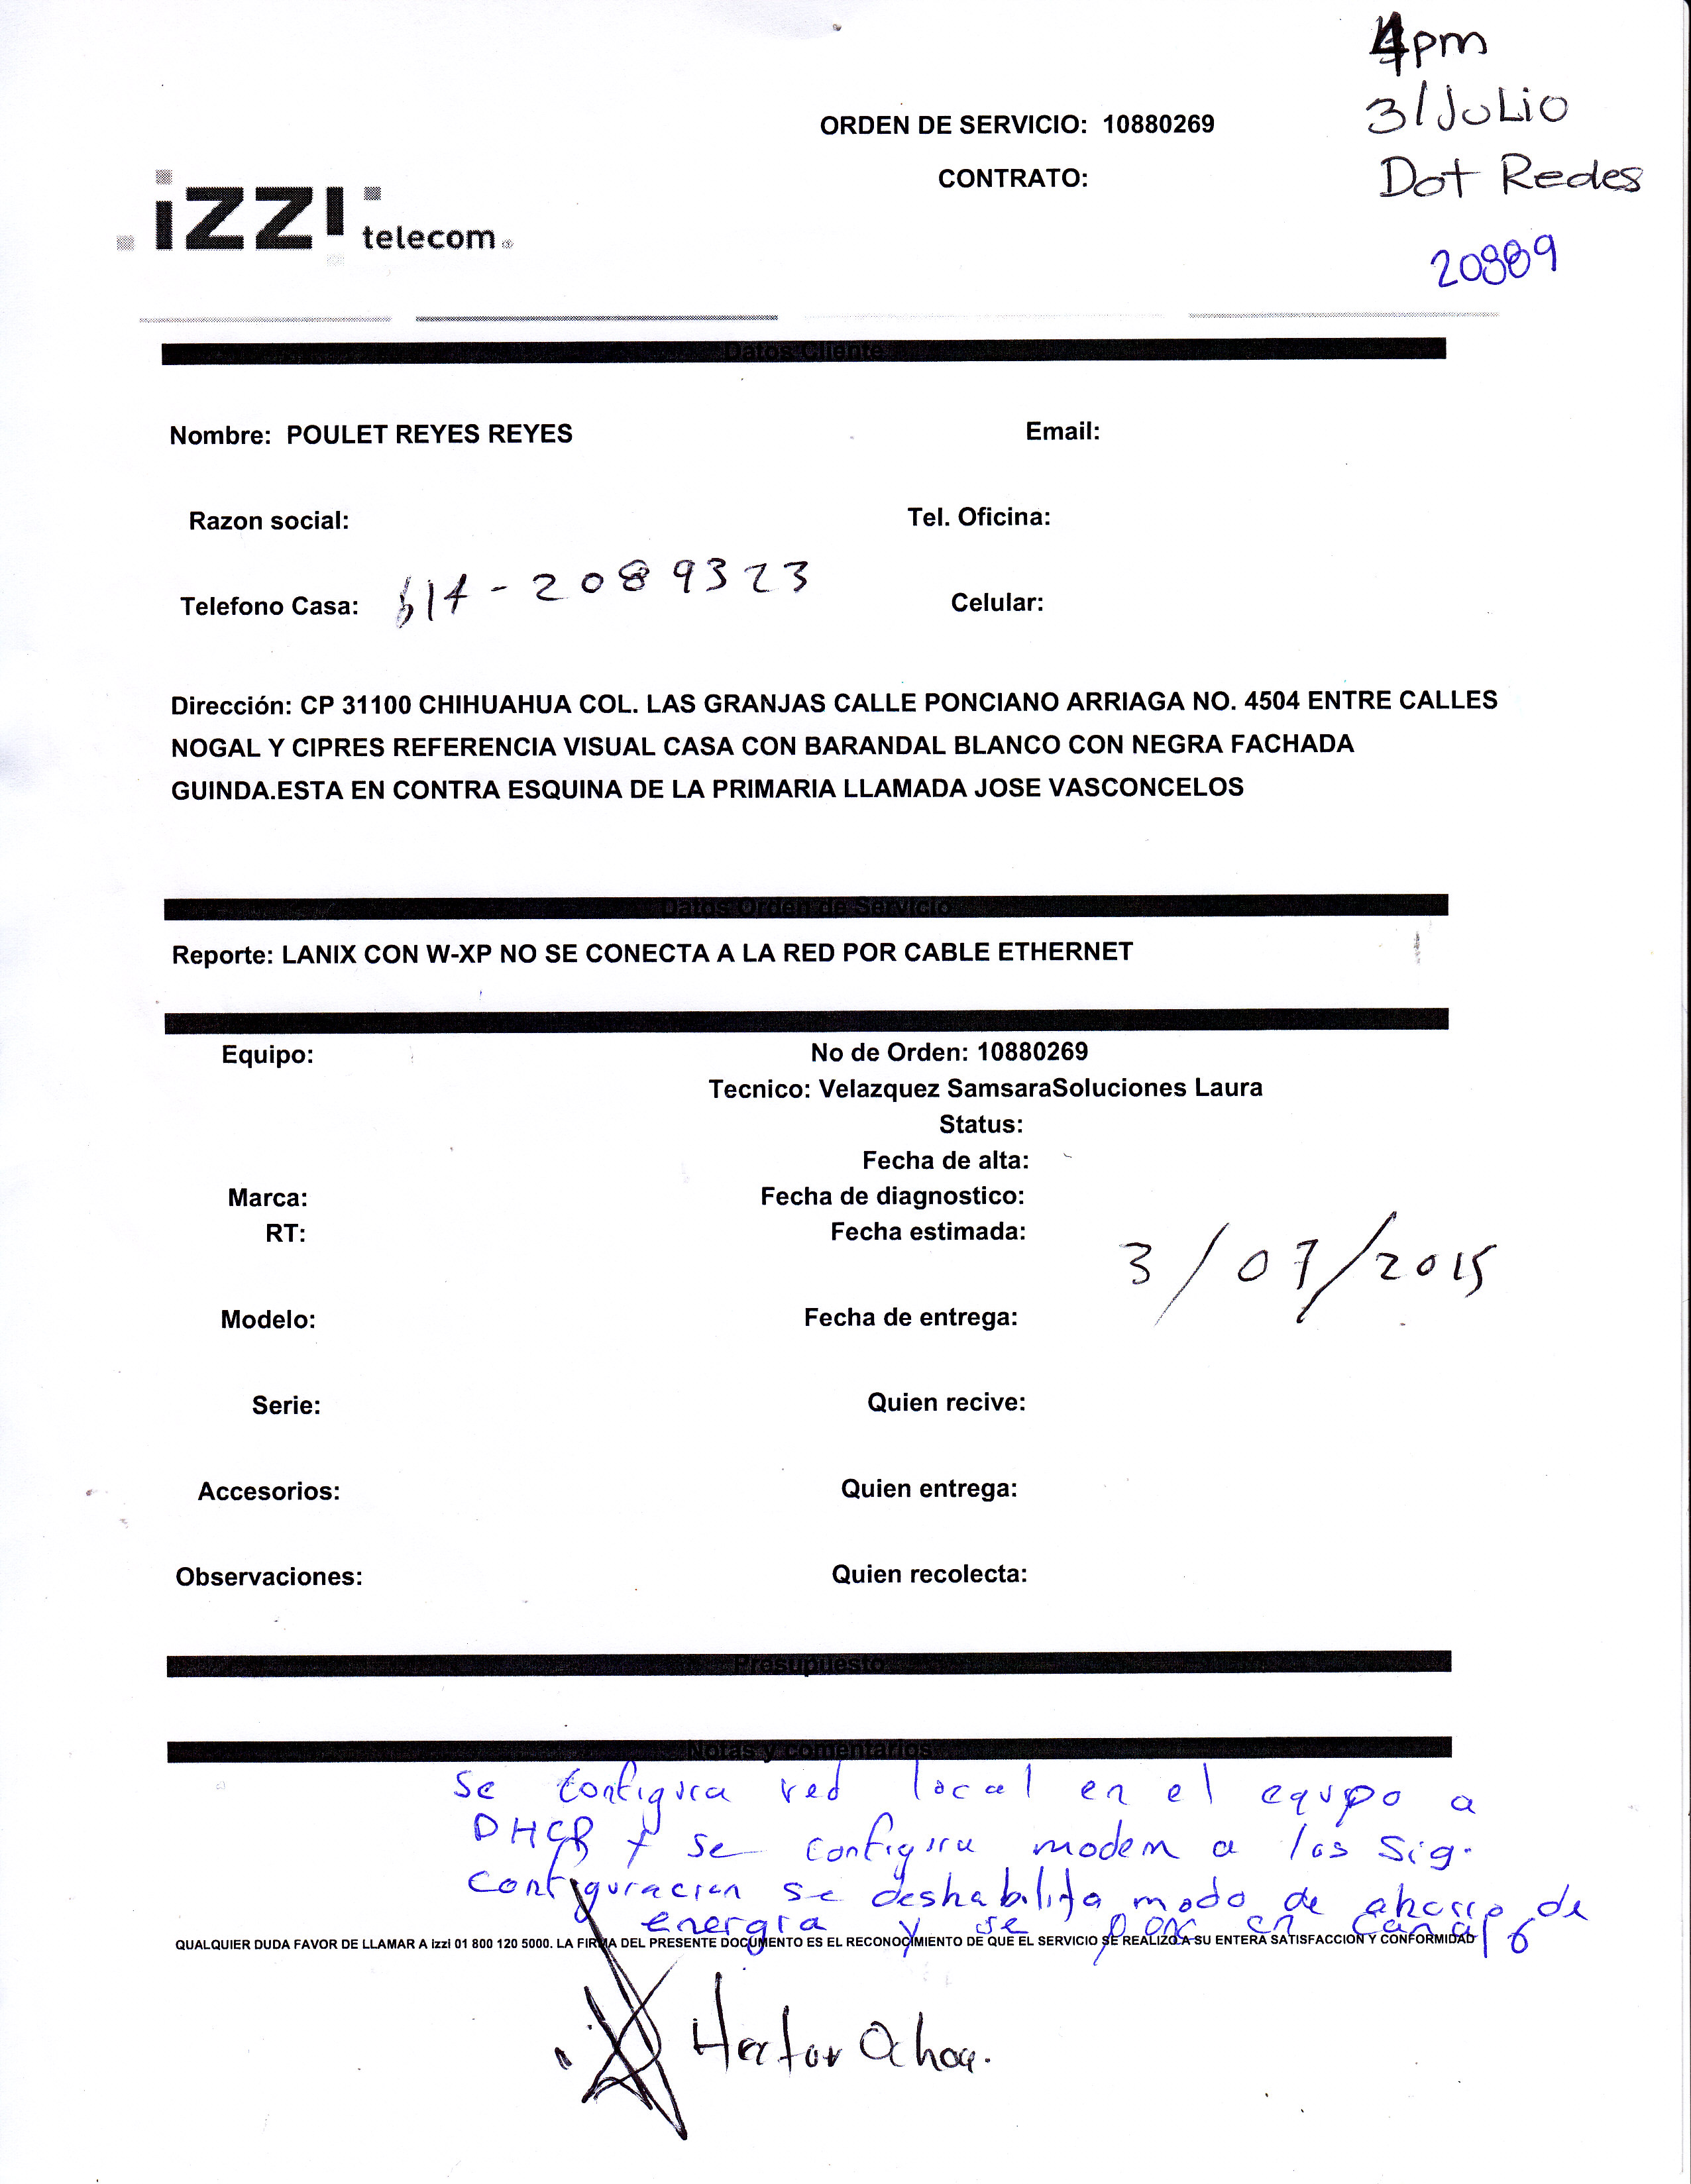 4pm
3/Julio
Dot Redes
ORDEN DE SERVICIO: 10880269
CONTRATO:
izzi telecom
Datos Cliente
Nombre: POULET REYES REYES
Email:
Razon social:
Tel. Oficina:
Telefono Casa: 614-2089323
Celular:
Dirección: CP 31100 CHIHUAHUA COL. LAS GRANJAS CALLE PONCIANO ARRIAGA NO. 4504 ENTRE CALLES
NOGAL Y CIPRES REFERENCIA VISUAL CASA CON BARANDAL BLANCO CON NEGRA FACHADA
GUINDA.ESTA EN CONTRA ESQUINA DE LA PRIMARIA LLAMADA JOSE VASCONCELOS
Datos Orden de Servicio
Reporte: LANIX CON W-XP NO SE CONECTA A LA RED POR CABLE ETHERNET
Equipo:
No de Orden: 10880269
Tecnico: Velazquez SamsaraSoluciones Laura
Status:
Fecha de alta:
Marca:
Fecha de diagnostico:
RT:
Fecha estimada:
3/07/2015
Modelo:
Fecha de entrega:
Serie:
Quien recive:
Accesorios:
Quien entrega:
Observaciones:
Quien recolecta:
Presupuesto
Notas y comentarios
Se configura red local en el equipo a
DHCP y se configura modem a las sig.
configuracion se deshabilita modo de ahorro de
energia y se pone en canal 6
QUALQUIER DUDA FAVOR DE LLAMAR A izzi 01 800 120 5000. LA FIRMA DEL PRESENTE DOCUMENTO ES EL RECONOCIMIENTO DE QUE EL SERVICIO SE REALIZO A SU ENTERA SATISFACCION Y CONFORMIDAD
Hector Ochoa.